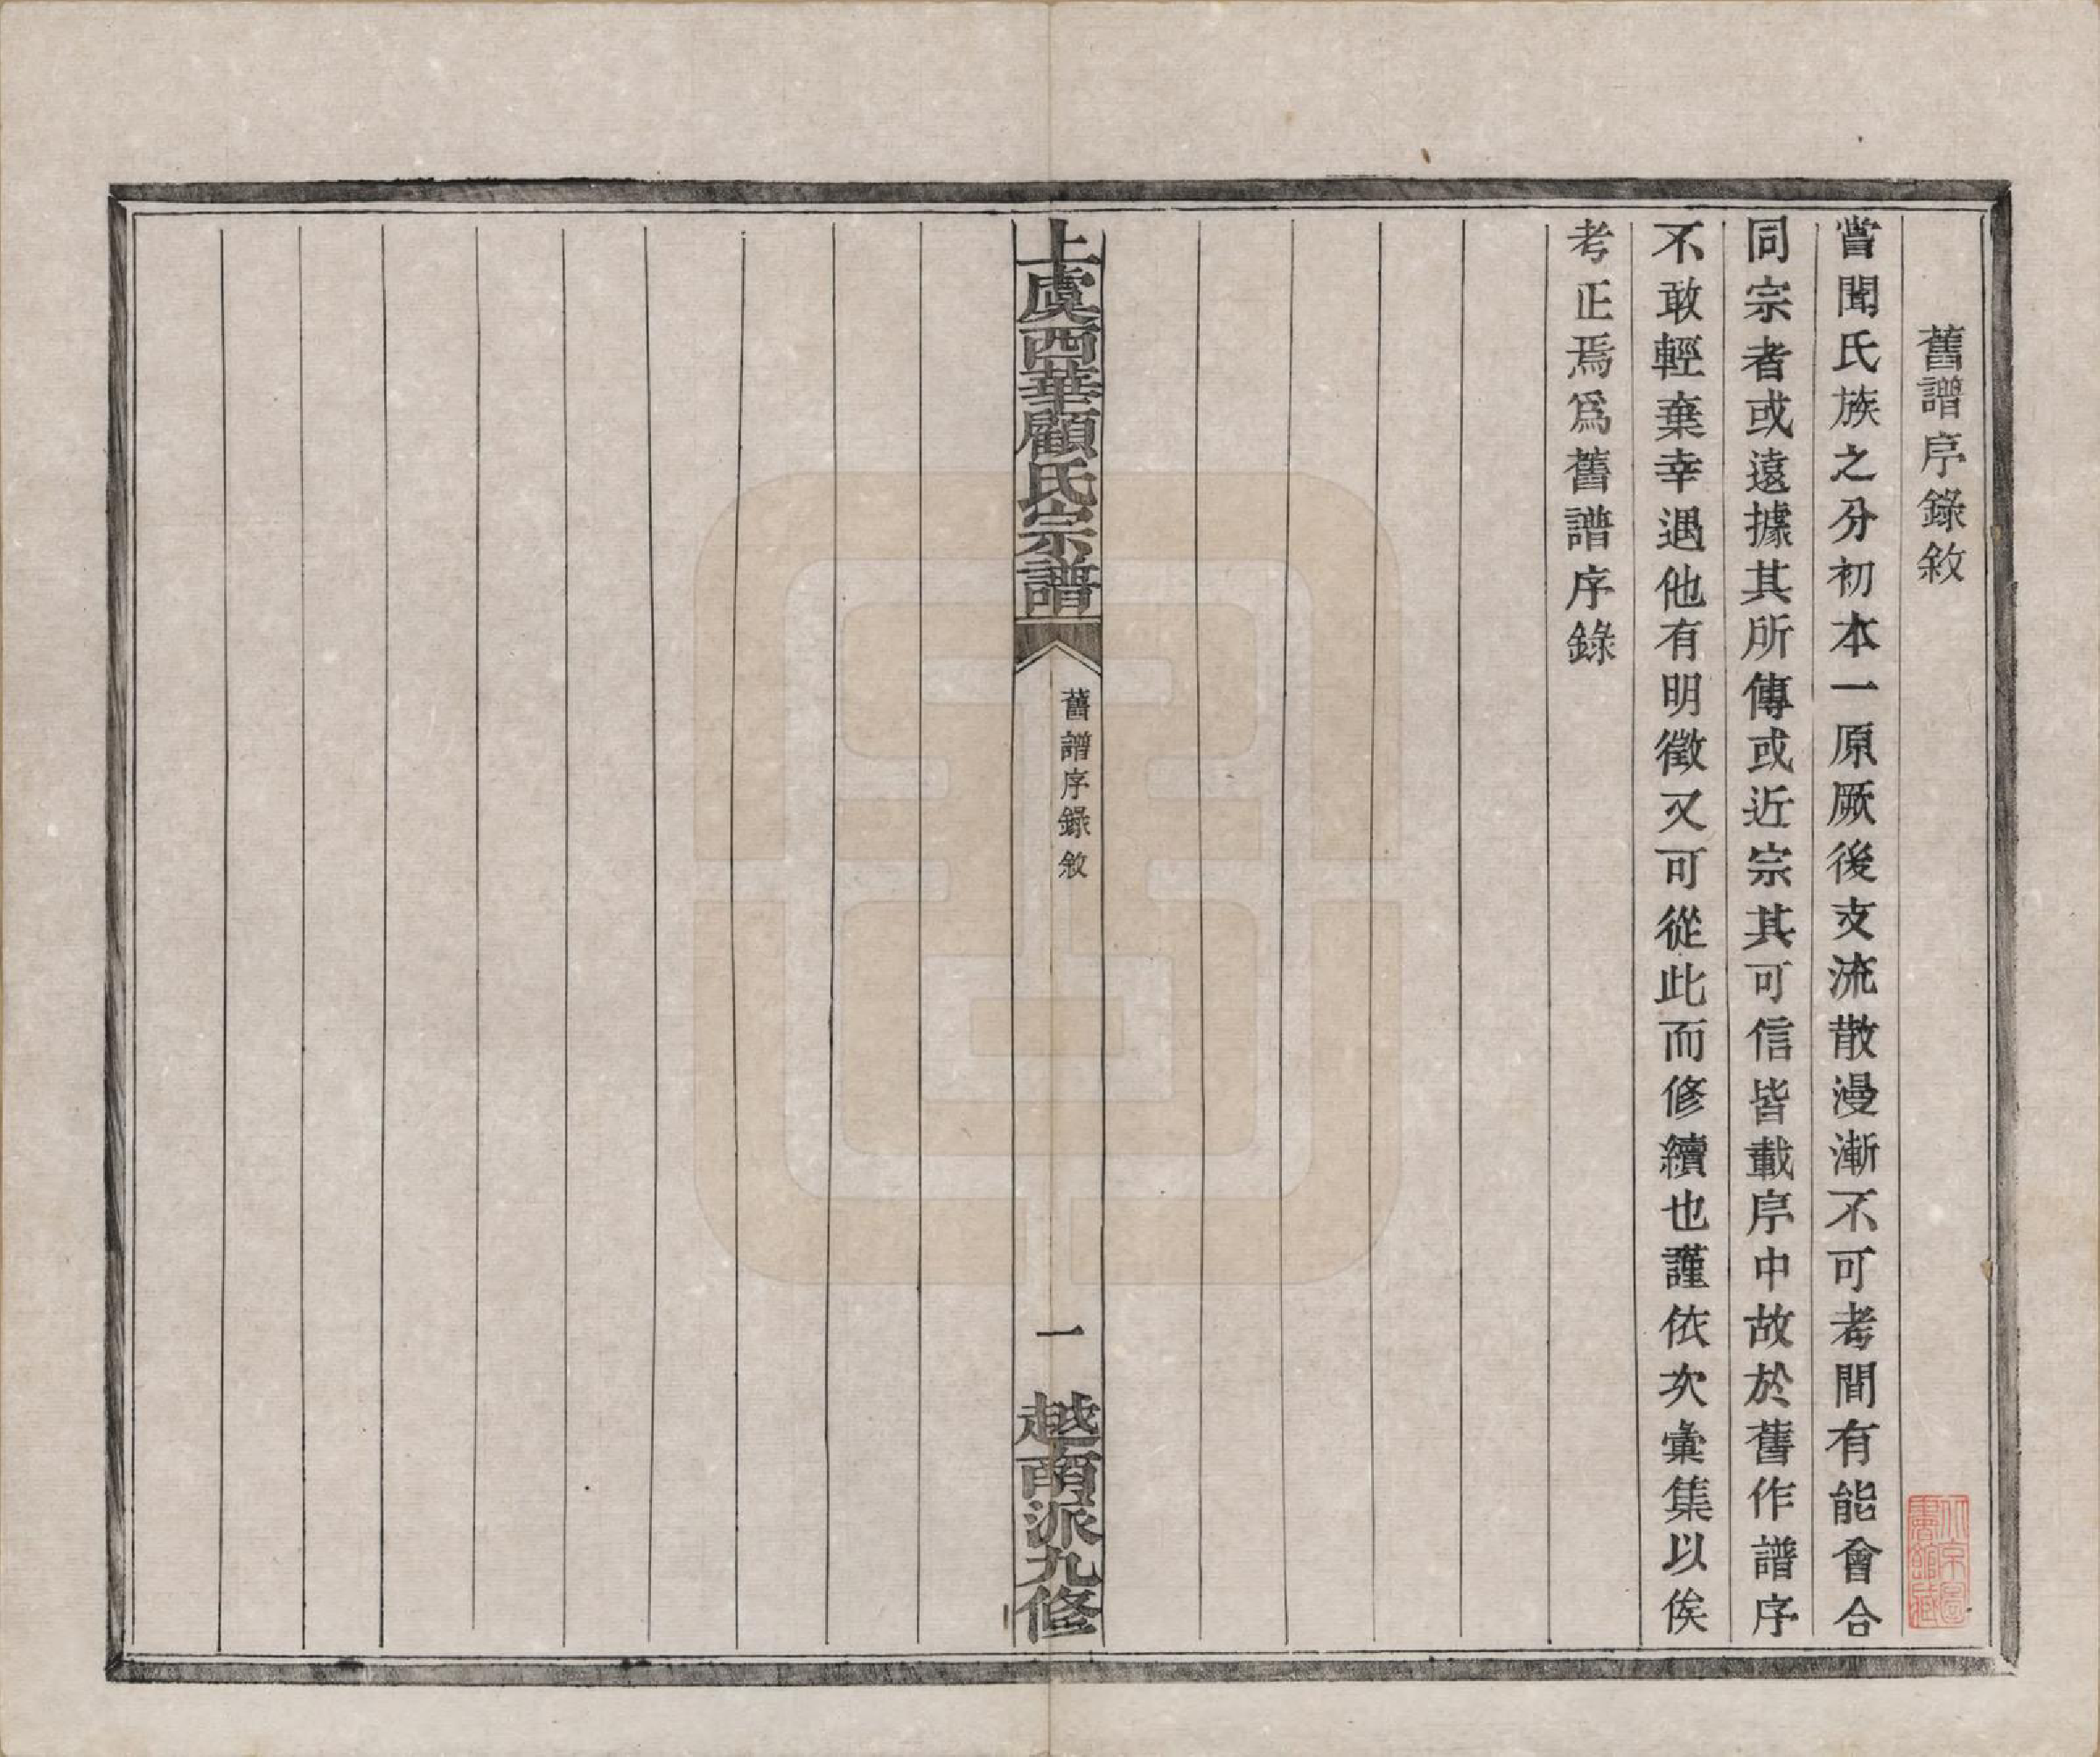 舊譜序錄敘
嘗聞氏族之分初本一原厥後支流散漫漸不可考間有能會合
同宗者或遠據其所傳或近宗其可信皆載序中故於舊作譜序
不敢輕棄幸遇他有明徵又可從此而修續也謹依次彙集以俟
考正焉爲舊譜序錄
上虞西華顧氏宗譜
舊譜序錄敘
一
越南派九修